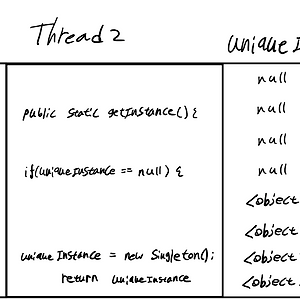 Thread 2
unique I
null
public static getInstance() {
null
null
if(uniqueInstance == null) {
null
<object
<object
uniqueInstance = new Singleton();
<object
return uniqueInstance
<object